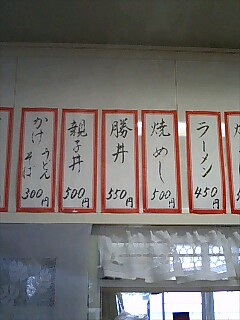 ラーメン
450円
焼めし
500円
勝丼
550円
親子丼
500円
かけ うどん
そば
300円